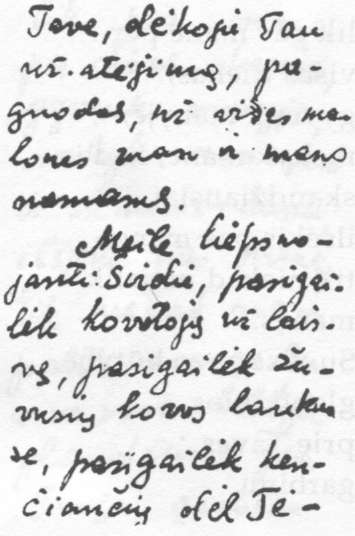 Tėve, dėkoju Tau
už atėjimą, pa-
guodas, už visas ma-
lones man ir mano
namams.
Meile liepsno-
janti Širdie, pasigai-
lėk kovotojų už lais-
vę, pasigailėk žu-
vusių kovos laukuo
se, pasigailėk ken-
čiančių dėl Tė-